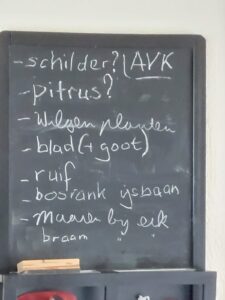 - schilder? | AVK
- pitrus?
- wilgen planten
- blad (+ goot)
- ruif
- bosrank ijsbaan
- maaien bij eik
braam " "